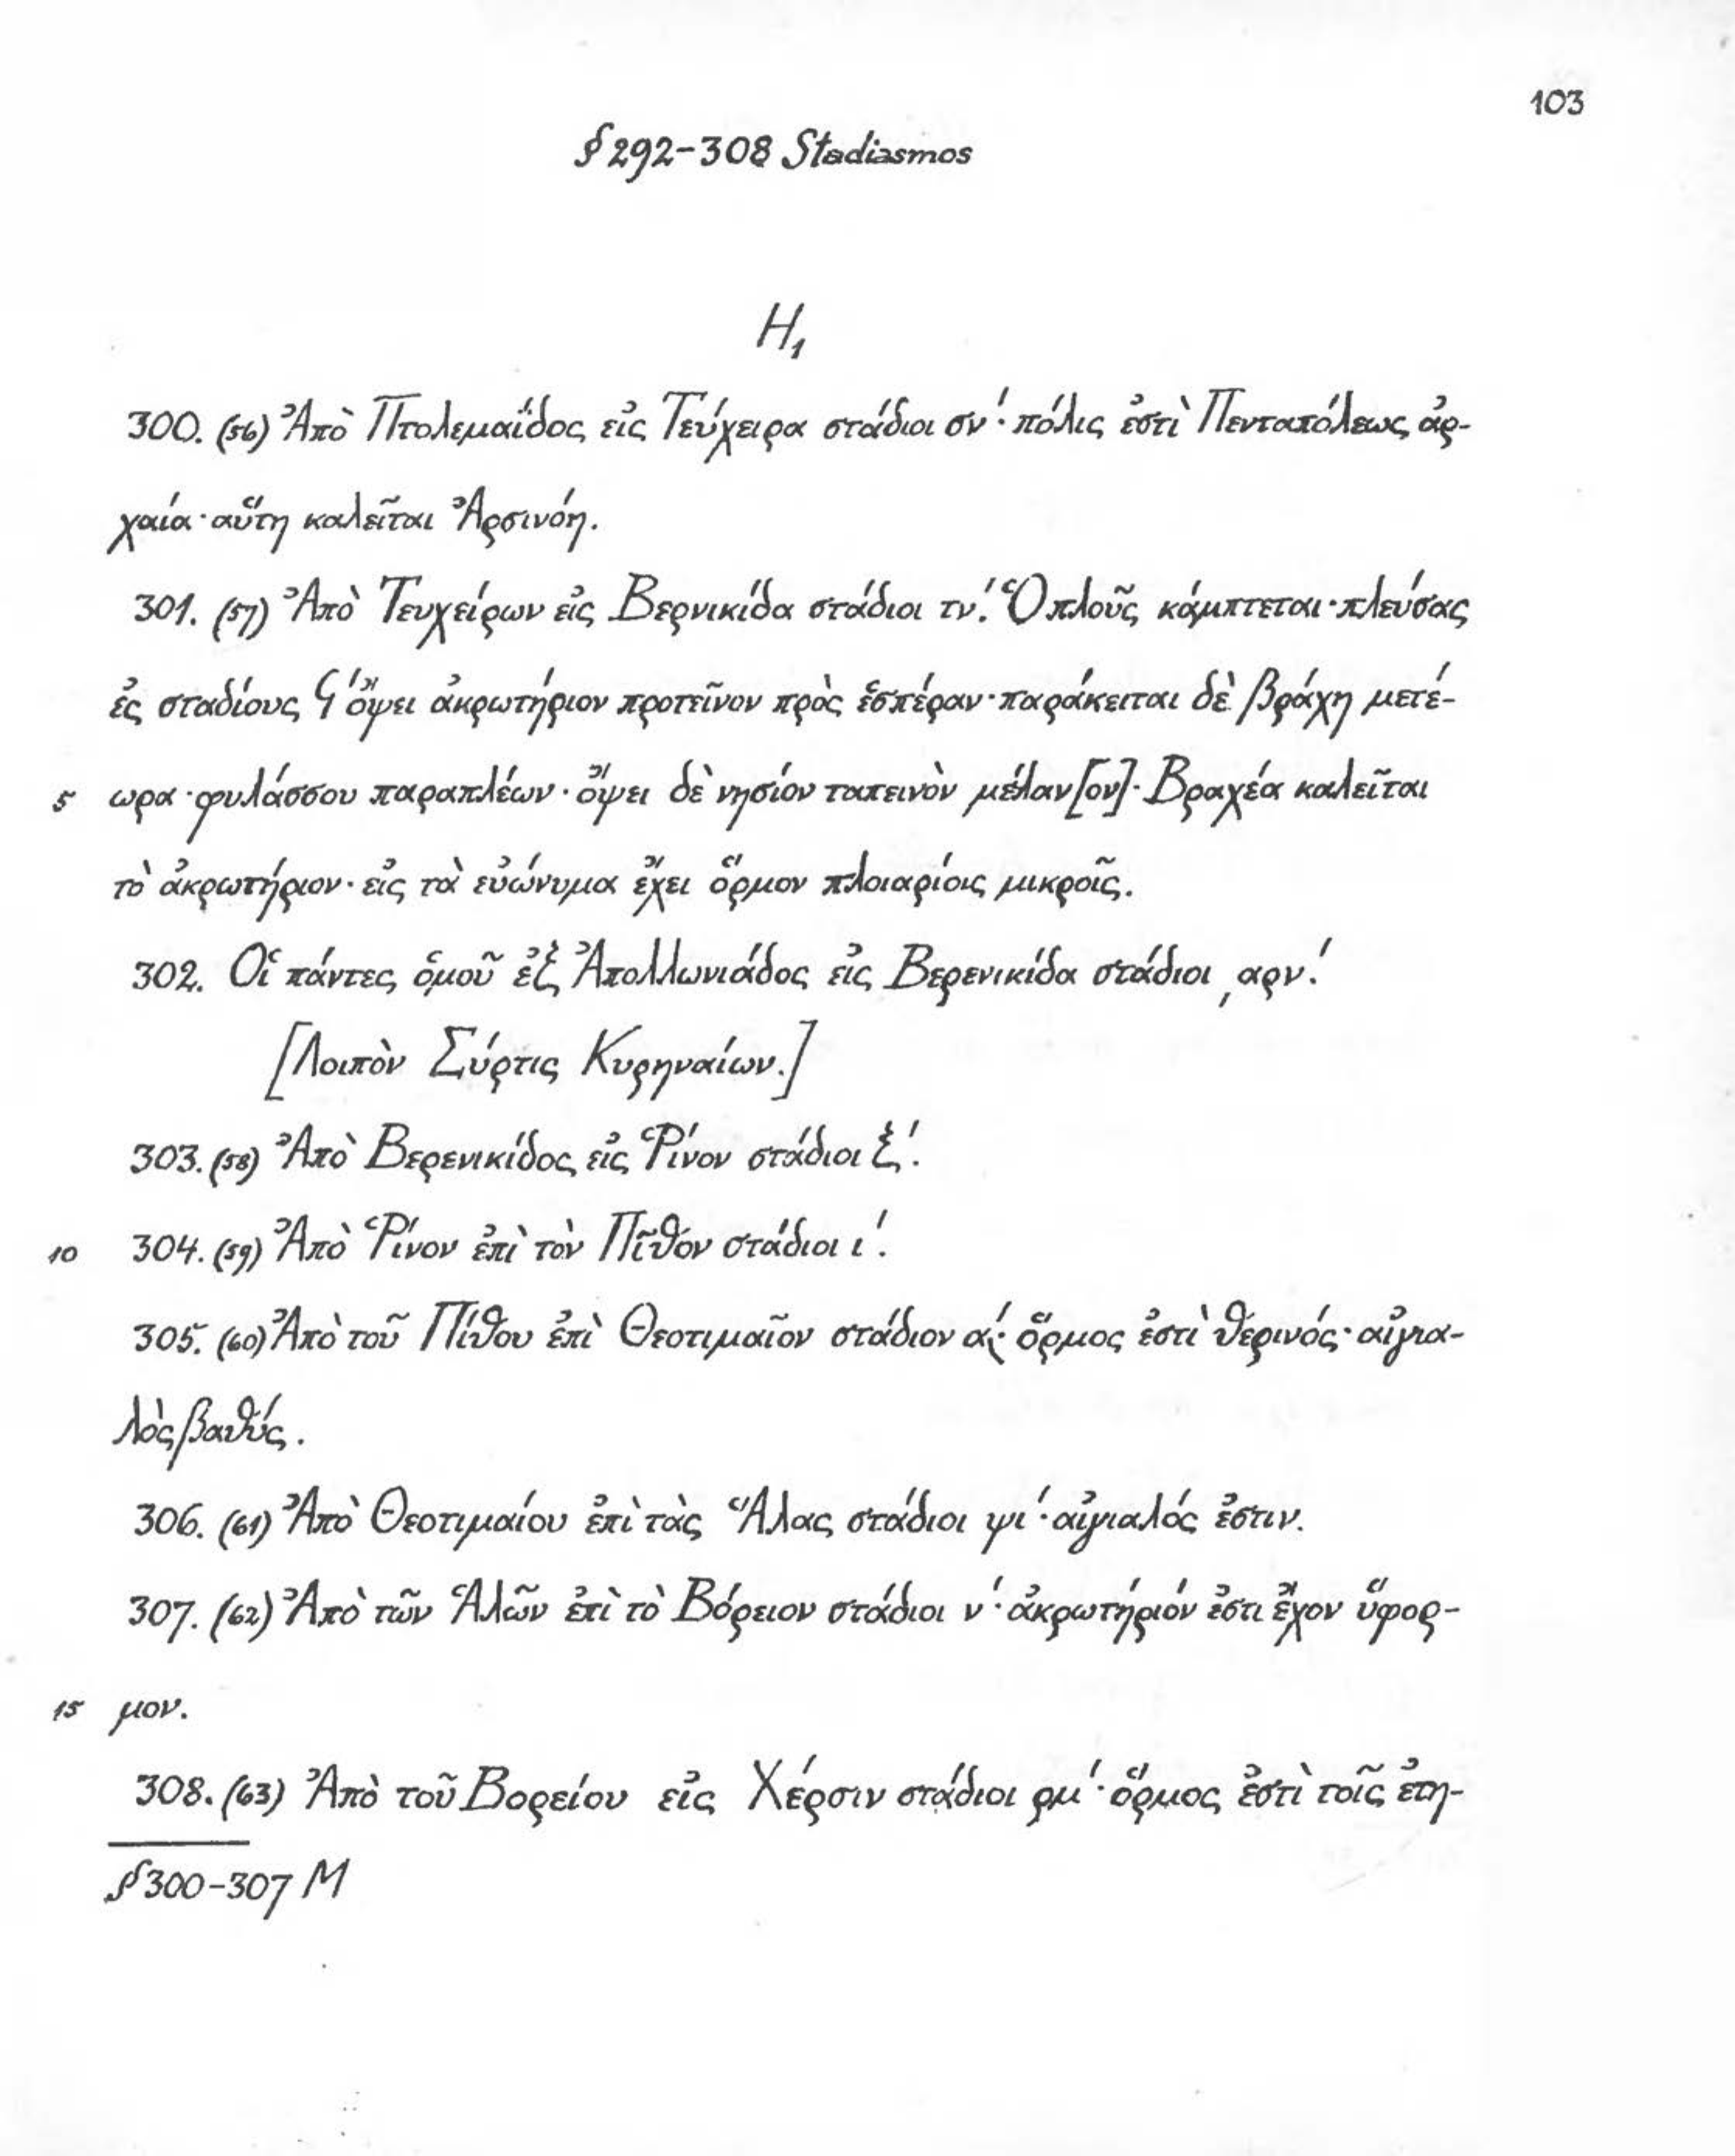 103
§ 292-308 Stadiasmos
H₁
300. (56) Ἀπὸ Πτολεμαΐδος εἰς Τεύχειρα στάδιοι σν´· πόλις ἐστὶ Πενταπόλεως ἀρ-
χαία· αὕτη καλεῖται Ἀρσινόη.
301. (57) Ἀπὸ Τευχείρων εἰς Βερνικίδα στάδιοι τν´. Ὁ πλοῦς κάμπτεται· πλεύσας
ἐς σταδίους Ϟ´ ὄψει ἀκρωτήριον προτεῖνον πρὸς ἑσπέραν· παράκειται δὲ βράχη μετέ-
5 ωρα· φυλάσσου παραπλέων· ὄψει δὲ νησίον ταπεινὸν μέλαν[ον]· Βραχέα καλεῖται
τὸ ἀκρωτήριον· εἰς τὰ εὐώνυμα ἔχει ὅρμον πλοιαρίοις μικροῖς.
302. Οἱ πάντες ὁμοῦ ἐξ Ἀπολλωνιάδος εἰς Βερενικίδα στάδιοι ͵αρν´.
[Λοιπὸν Σύρτις Κυρηναίων.]
303. (58) Ἀπὸ Βερενικίδος εἰς Ῥίνον στάδιοι ξ´.
10 304. (59) Ἀπὸ Ῥίνον ἐπὶ τὸν Πῖθον στάδιοι ι´.
305. (60) Ἀπὸ τοῦ Πίθου ἐπὶ Θεοτιμαῖον στάδιον α´· ὅρμος ἐστὶ θερινός· αἰγια-
λὸς βαθύς.
306. (61) Ἀπὸ Θεοτιμαίου ἐπὶ τὰς Ἅλας στάδιοι ψι´· αἰγιαλός ἐστιν.
307. (62) Ἀπὸ τῶν Ἁλῶν ἐπὶ τὸ Βόρειον στάδιοι ν´· ἀκρωτήριόν ἐστι ἔχον ὕφορ-
15 μον.
308. (63) Ἀπὸ τοῦ Βορείου εἰς Χέρσιν στάδιοι ρμ´· ὅρμος ἐστὶ τοῖς ἐτη-
§ 300-307 M